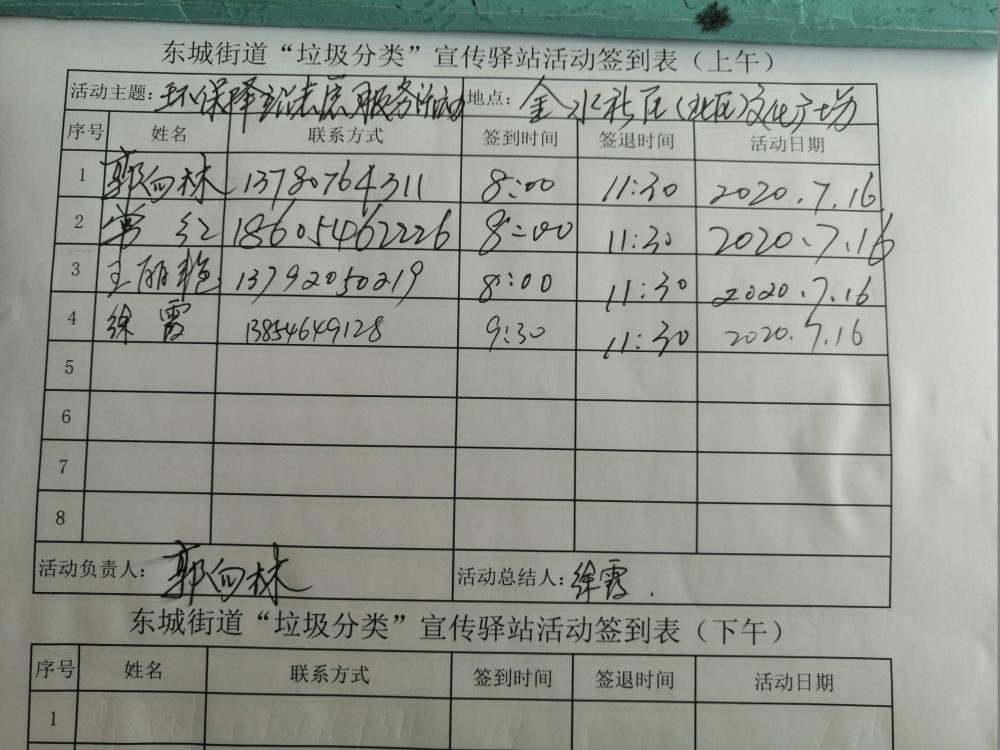 东城街道“垃圾分类”宣传驿站活动签到表（上午）
活动主题：环保驿站志愿服务活动 地点：金水社区（北区）文化广场
序号 姓名 联系方式 签到时间 签退时间 活动日期
1 郭向林 13780764311 8:00 11:30 2020.7.16
2 常红 18605462226 8:00 11:30 2020.7.16
3 王丽艳 13792050219 8:00 11:30 2020.7.16
4 徐霞 13854649128 9:30 11:30 2020.7.16
5
6
7
8
活动负责人：郭向林 活动总结人：徐霞.
东城街道“垃圾分类”宣传驿站活动签到表（下午）
序号 姓名 联系方式 签到时间 签退时间 活动日期
1